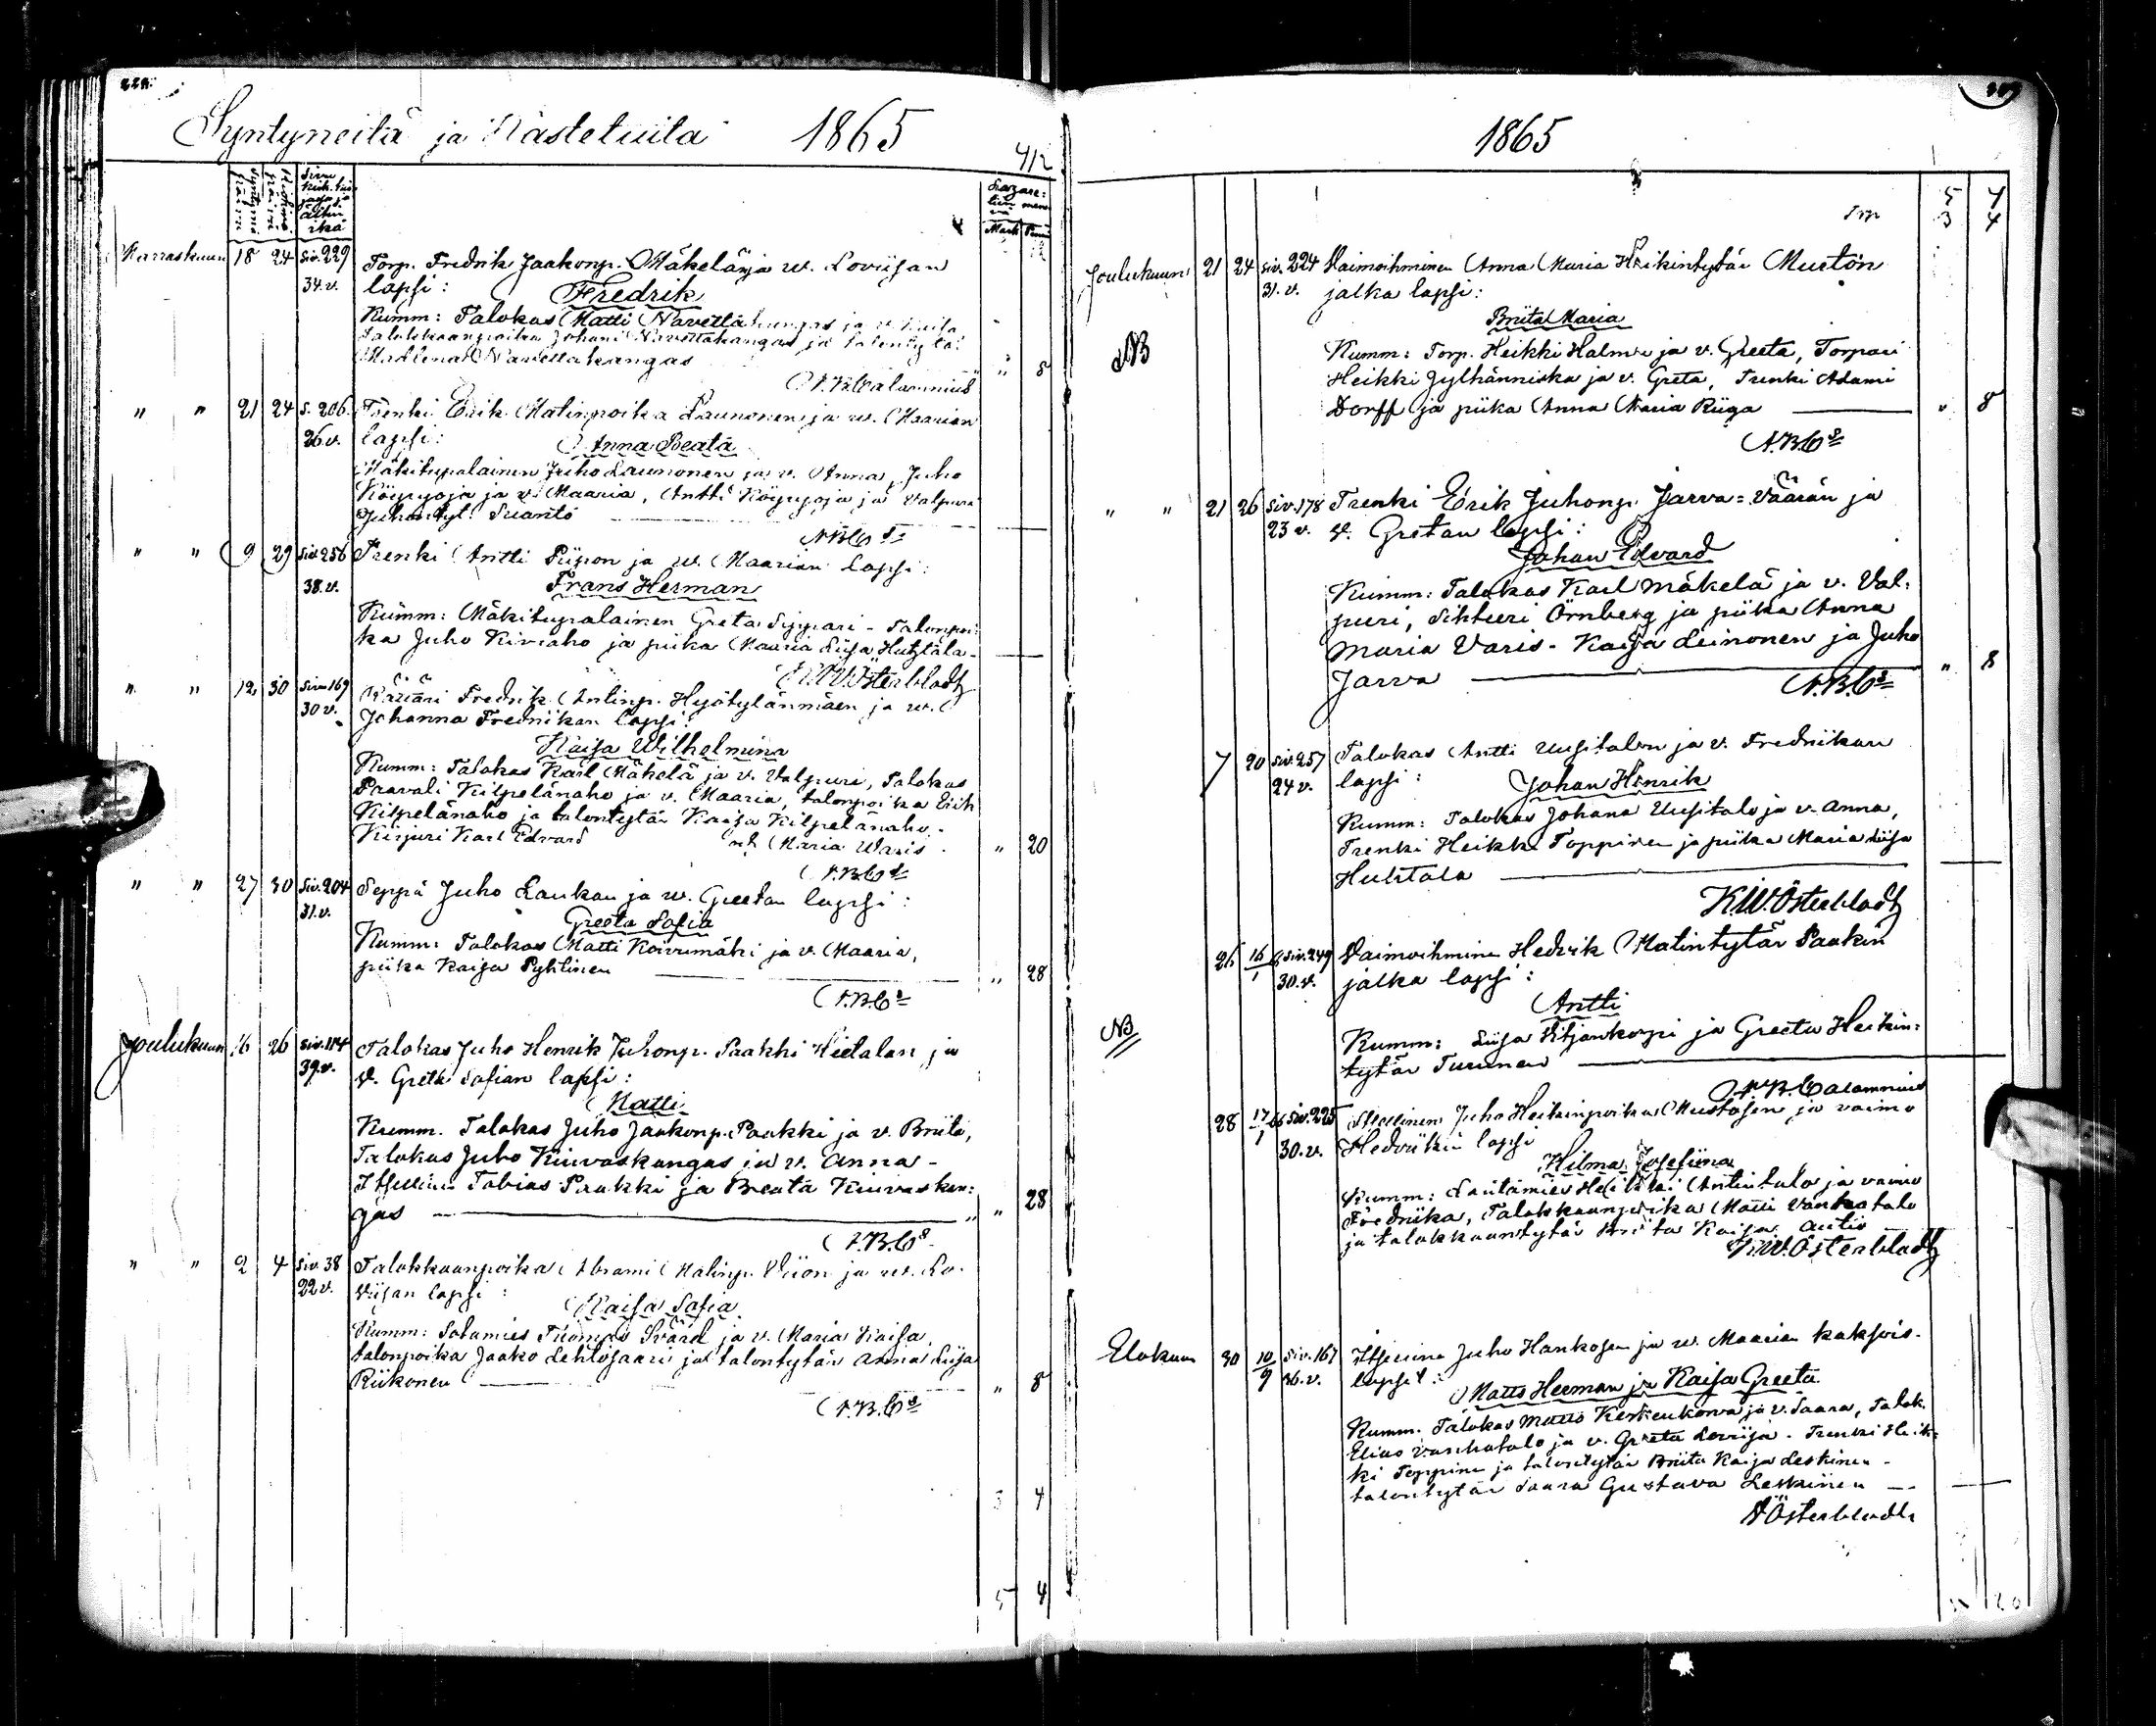 Syntyneitä ja Kastetuita 1865
412
Mark
Marraskuun 18 24 Siv. 229 Torp. Fredrik Jaakonp. Mäkelän ja w. Loviisan
34. v. lapsi:
Fredrik
Kumm: Talokas Matti Navetta
Johani Navettakangas ja
Navettakangas " 8
" " 21 24 S. 206 Trenki Erik Matinpoika Launonen ja w. Maarian
26 v. lapsi:
Anna Beata
Mäkitupalainen Juho Launonen ja v. Anna, Juho
Köngysoja ja v. Maaria, Antti Köngysoja ja Valpuri
A.B.Cs
" " 9 29 Siv. 256 Trenki Antti Piipon ja w. Maarian lapsi:
38. v. Frans Herman
Kumm: Mäkitupalainen Greta Sippari - Talonpoi-
ka Juho Kiviaho ja piika Maaria Liisa Huhtala -
K.W. Österbladh
" " 12 30 Siv. 169 Fredrik Antinp. Hyötylänmäen ja w.
30 v. Johanna Fredrikan lapsi:
Kaisa Wilhelmina
Kumm: Talokas Karl Mäkelä ja v. Valpuri, Talokas
Paavali Kilpelänaho ja v. Maaria, talonpoika Erik
Kilpelänaho ja talontytär Kaisa Kilpelänaho.
Kirjuri Karl Edvard Maria Waris. " 20
A.B.Cs
" " 27 30 Siv. 204 Seppä Juho Laukan ja w. Greetan lapsi:
31. v. Greeta Sofia
Kumm: Talokas Matti Koivumäki ja v. Maaria,
piika Kaisa Pyhtinen " 28
A.B.Cs
Joulukuun 16 26 Siv. 114 Talokas Juho Henrik Juhonp. Paakki Hietalan ja
39. v. v. Greta Sofian lapsi:
Matti
Kumm. Talokas Juho Jaakonp. Paakki ja v. Briita,
Talokas Juho Kiuvaskangas ja v. Anna -
Itsellinen Tobias Paakki ja Breata Kiuvaskan:
gas " 28
A.B.Cs
" " 2 4 Siv. 38 Talokkaanpoika Abrami Matinp. ja w. Lo-
22 v. viisan lapsi:
Kaisa Sofia
Kumm: Sotamies Tuomas Svärd ja v. Maria Kaisa,
talonpoika Jaako Lehtosaari ja talontytär Anna Liisa
Riikonen " 8
A.B.Cs
3 4
5 4
1865
5 4
3 4
Joulukuun 21 24 Siv. 224 Vaimoihminen Anna Maria Heikintytär Mustön
31. v. jalka lapsi:
Briita Maria
NB Kumm: Torp. Heikki Halme ja v. Greeta, Torpari
Heikki Jylhänniska ja v. Greta, Trenki Adami
Dorff ja piika Anna Maria Riiga " 8
A.B.Cs
" " 21 26 Siv. 178 Trenki Erik Juhonp. Jarva = Väärän ja
23 v. v. Gretan lapsi:
Johan Edvard
Kumm: Talokas Karl Mäkelä ja v. Val:
puri, Sihteeri Örnberg ja piika Anna
Maria Varis - Kaisa Leinonen ja Juho
Jarva " 8
A.B.Cs
7 20 Siv. 257 Talokas Antti Uusitalon ja v. Fredriikan
24 v. lapsi:
Johan Henrik
Kumm: Talokas Johana Uusitalo ja v. Anna,
Trenki Heikki Toppinen ja piika Maria Liisa
Huhtala
K.W. Österbladh
26 16/1 Siv. 249 Vaimoihminen Hedvik Matintytär Paakin
30. v. jalka lapsi:
Antti
NB Kumm: Liisa Kitjankorpi ja Greeta Heikin:
tytär Turunen
A.B. Calamnius
28 17/1 66 Siv. 225 Itsellinen Juho Heikinpoika Mustosen ja vaimo
30. v. Hedviikin lapsi
Hilma Josefiina
Kumm: Lautamies Heikki Antintalo ja vaimo
Fredriika, Talokkaanpoika Matti Vanhatalo
ja talokkaantytär Briita Kaisa Autio
K.W. Österbladh
Elokuun 30 10/9 Siv. 167 Itsellinen Juho Hankosen ja w. Maarian kaksois-
36. v. lapset:
Matts Herman ja Kaisa Greeta
Kumm. Talokas Matts Keskenkorva ja v. Saara, Talok.
Elias Vanhatalo ja v. Greta Loviisa. Trenki Heik-
ki Toppinen ja talontytär Briita Kaisa Leskinen -
talontytär Saara Gustava Leskinen
Österbladh
20